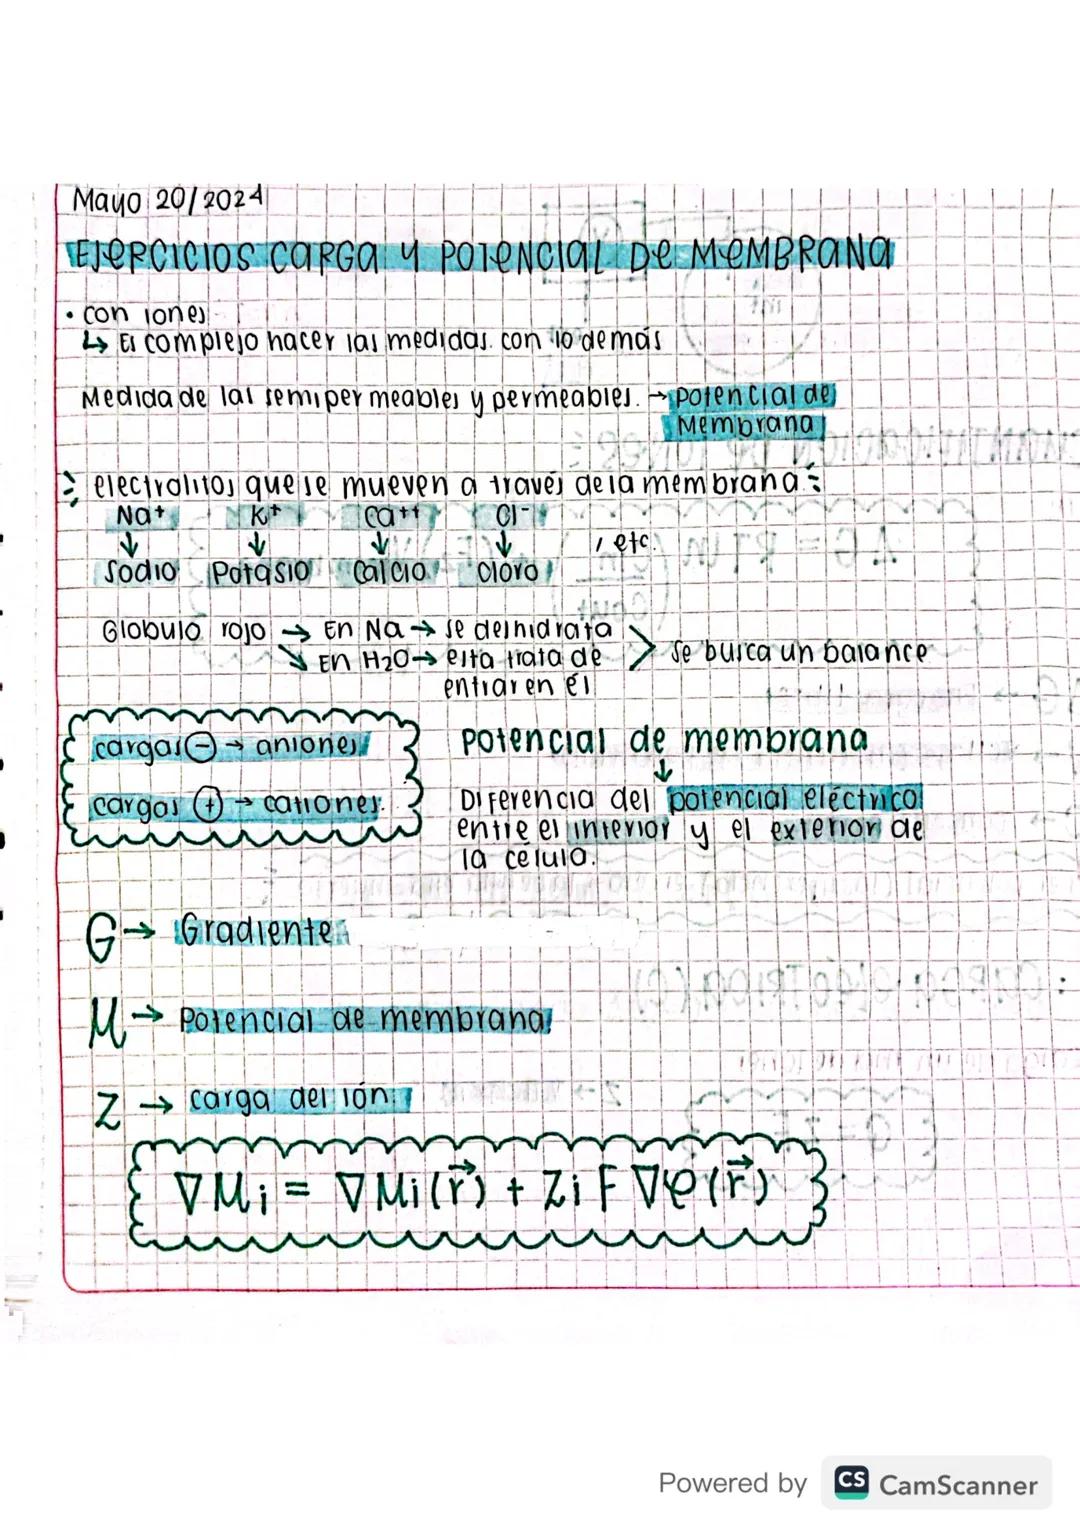 Mayo 20/2024
EJERCICIOS CARGA Y POTENCIAL DE MEMBRANA
• con iones
↳ Es complejo hacer las medidas con lo demás
Medida de las semipermeables y permeables. → potencial de
Membrana
electrolitos que se mueven a través de la membrana:
Na+ K+ Ca++ Cl-
↓ ↓ ↓ ↓ , etc.
Sodio Potasio Calcio Cloro
Globulo rojo → En Na → se deshidrata
↘ En H2O → esta trata de > se busca un balance
entrar en él
cargas ⊖ → aniones
cargas ⊕ → cationes.
Potencial de membrana
↓
Diferencia del potencial eléctrico
entre el interior y el exterior de
la célula.
G → Gradiente
M → Potencial de membrana
Z → carga del ión
∇Mi = ∇Mi(r⃗) + Zi F ∇φ(r⃗)
Powered by CS CamScanner